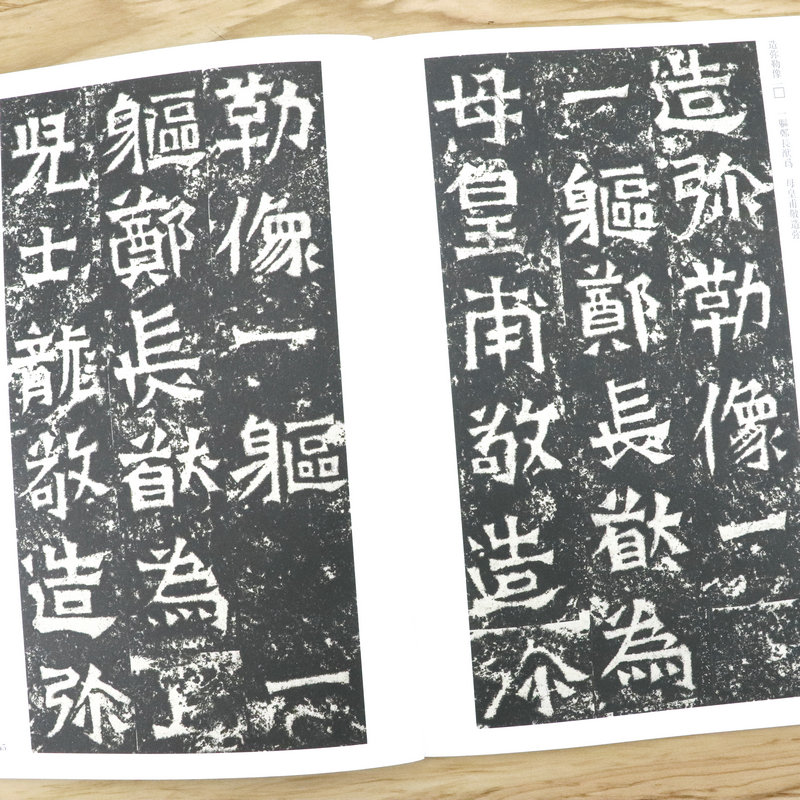 造弥勒像□　一軀鄭長猷為　母皇甫敬造弥
造弥勒像一
一軀鄭長猷為
母皇甫敬造弥
勒像一軀　一
軀鄭長猷為
児士龍敬造弥